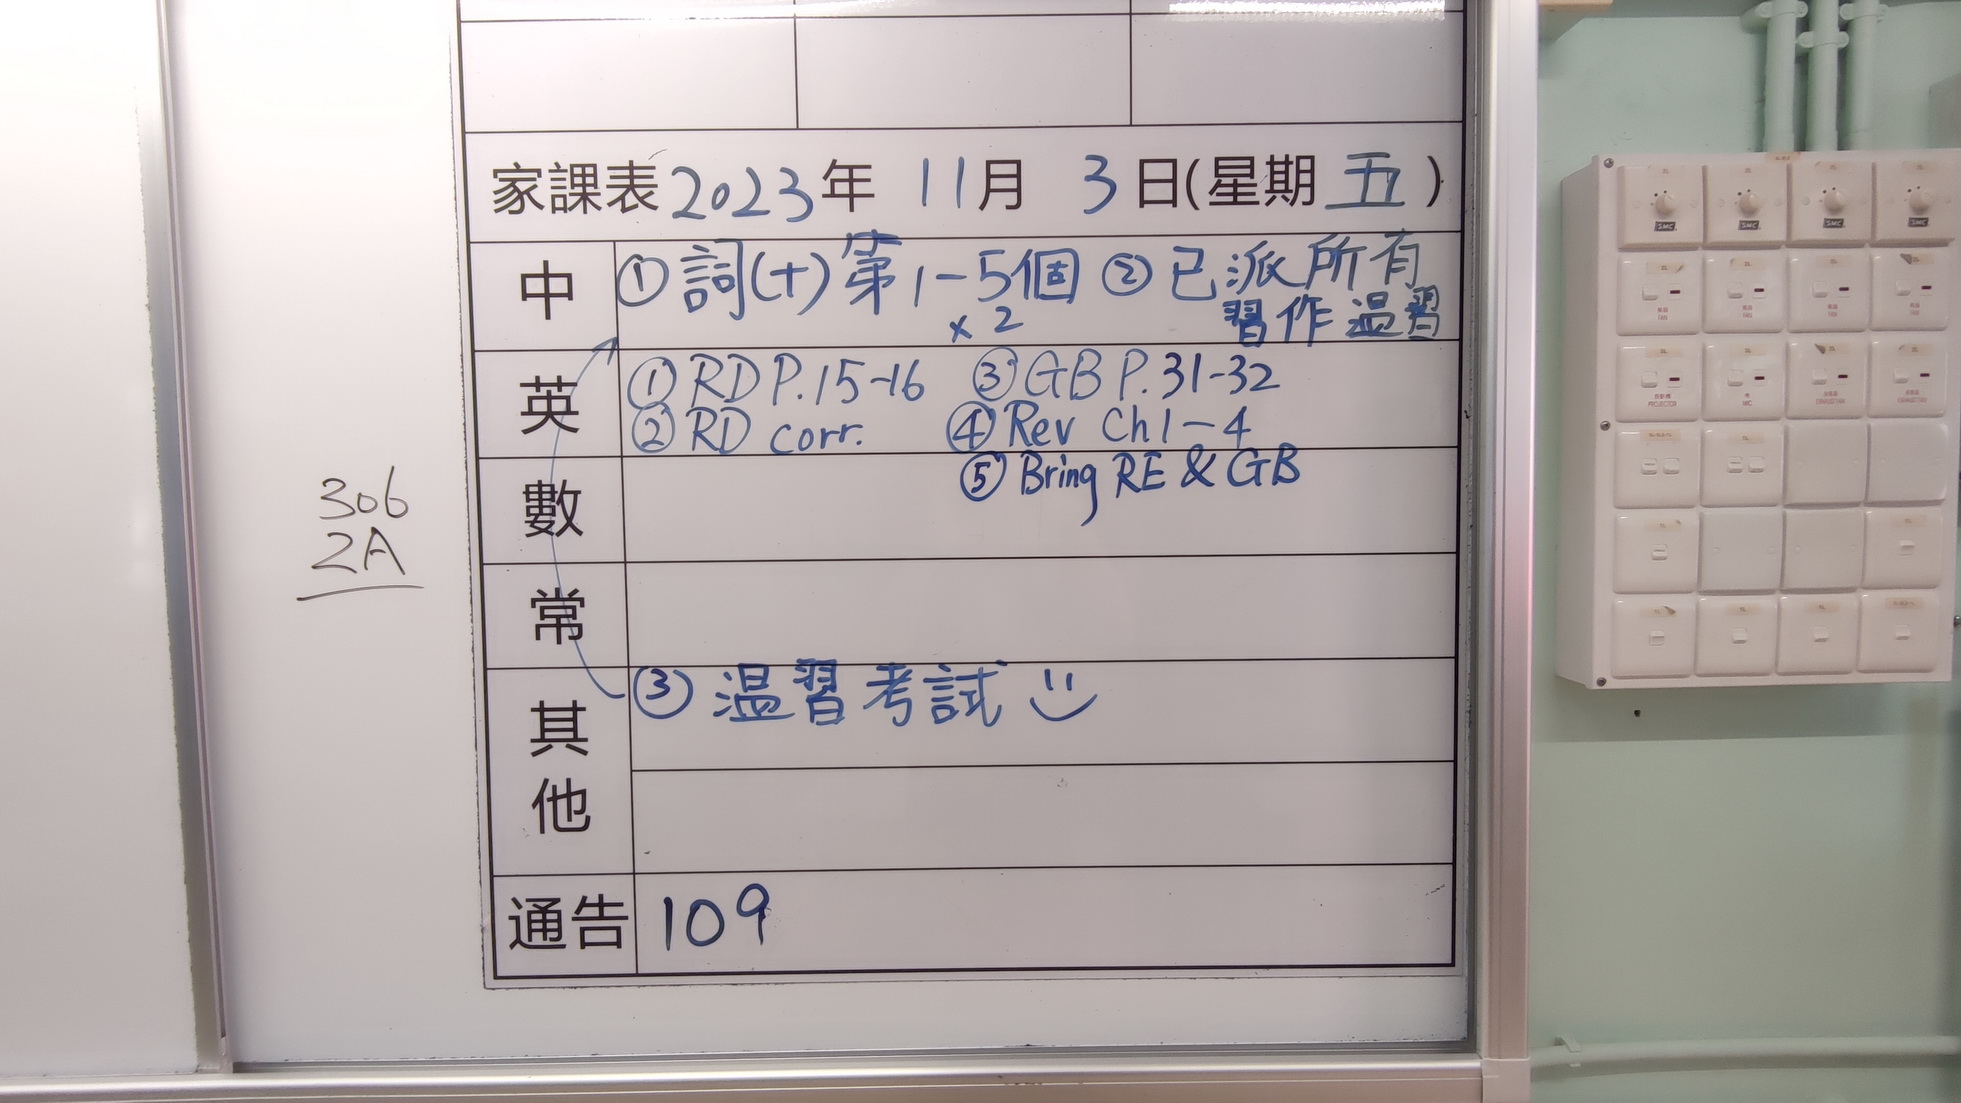 家課表 2023年 11月 3日(星期 五)
中 ① 詞(十) 第1-5個 ② 已派所有
x 2 習作温習
英 ① RD P.15-16 ③ GB P.31-32
② RD corr. ④ Rev Ch1-4
⑤ Bring RE & GB
數
常
其他 ③ 温習考試
通告 109
306
2A
SMC SMC SMC SMC
FAN FAN FAN FAN
PROJECTOR MIC